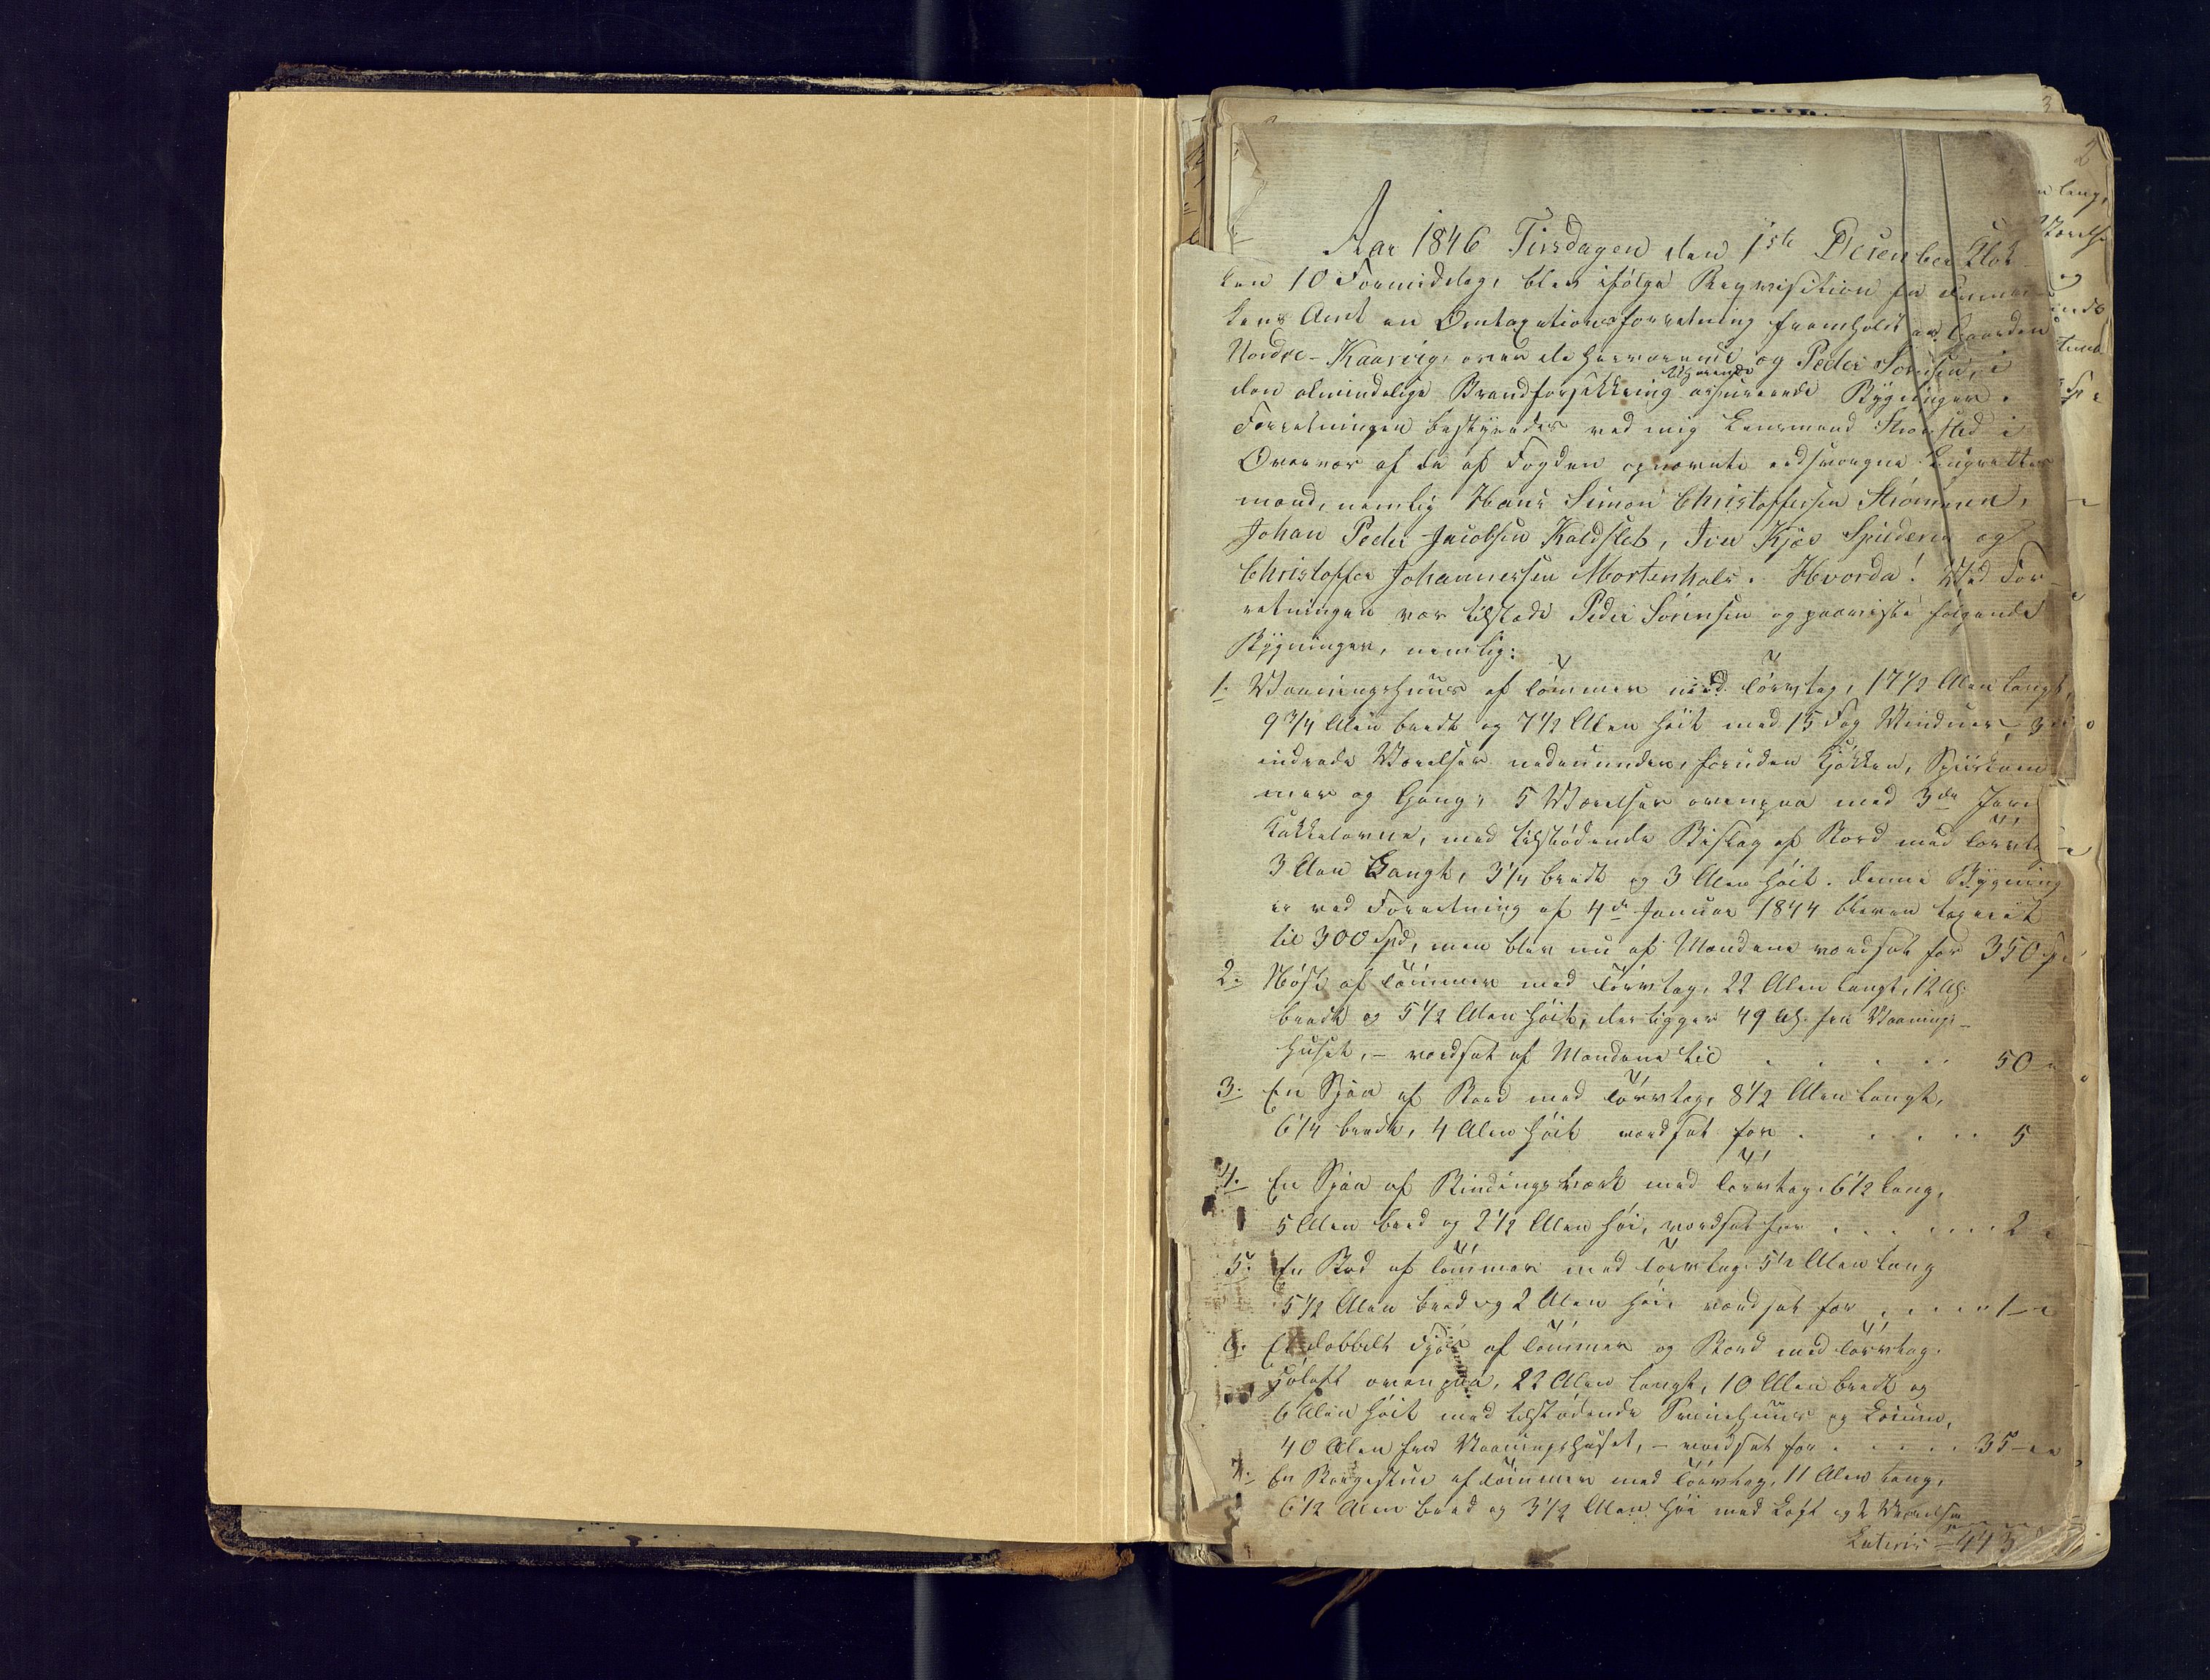 Aar 1846 Tirsdagen den 1ste Desember Klok-
ken 10 Formiddag, blev ifølge Reqvisition fra Finmar-
kens Amt en Omtaxationsforretning fremholdt paa Gaarden
Nordre-Kaarvig, over de herværende og Peder Sørnsen, i
den almindelige Brandforsikkring tilhørende assureerede Bygninger.
Forretningen bestyredes ved mig Lensmand Strøsted i
Overvær af de af Fogden opnævnte edsvorgne Laugrettes
mænd, nemlig Hans Simon Christoffersen Strømmen,
Johan Peder Jacobsen Kaldslet, Iver Kjøs Spilderen og
Christoffer Johannessen Mortenhals. Hvorda! Ved For-
retningen var tilstæde Peder Sørensen og paaviste følgende
Bygninger, nemlig:
1. Vaaningshuus af Tømmer med Tørvtag, 17 1/2 Alen langt,
9 3/4 Alen bredt og 7 1/2 Alen høit med 15 Fag Vinduer, 3
indrede Værelser nedenunder, foruden Kjøkken, Spiiskam
mer og Gang, 5 Værelser ovenpaa med 3de Jern
Kakkelovne, med tilstødende Bislag af Bord med Tørvta
3 Alen Langt, 3 1/4 bredt og 3 Alen høit. Denne Bygning
er ved Forretning af 4de Januar 1844 bleven taxeret
til 300 Spd, men blev nu af Mændene værdsat for 350 Sp
2. Nøst af Tømmer med Tørvtag, 22 Alen langt, 12 Al.
bredt og 5 1/2 Alen høit, der ligger 49 Al. fra Vaanings-
huset, – værdsat af Mændene til . . . . . 50 -
3. En Sjaa af Bord med Tørvtag, 8 1/2 Alen langt,
6 1/4 bredt, 4 Alen høit værdsat for . . . . . 5
4. En Sjaa af Bindingsværk med Tørvtag. 6 1/2 lang,
5 Alen bred og 2 1/2 Alen høi, værdsat for . . . . . 2
5. En Bod af Tømmer med Tørvtag. 5 1/2 Alen lang
5 1/2 Alen bred og 2 Alen høi, værdsat for . . . . 1 -
6. Et dobbelt Fjøs af Tømmer og Bord med Tørvtag.
Høloft ovenpaa, 22 Alen langt, 10 Alen bredt og
6 Alen høit med tilstødende Sviinehuus og
40 Alen fra Vaaningshuset, – værdsat for . . . . . 35 -
7. En Borgestue af Tømmer med Tørvtag, 11 Alen lang,
6 1/2 Alen bred og 3 1/2 Alen høi med Loft og 2 Værelser
Lateris 443